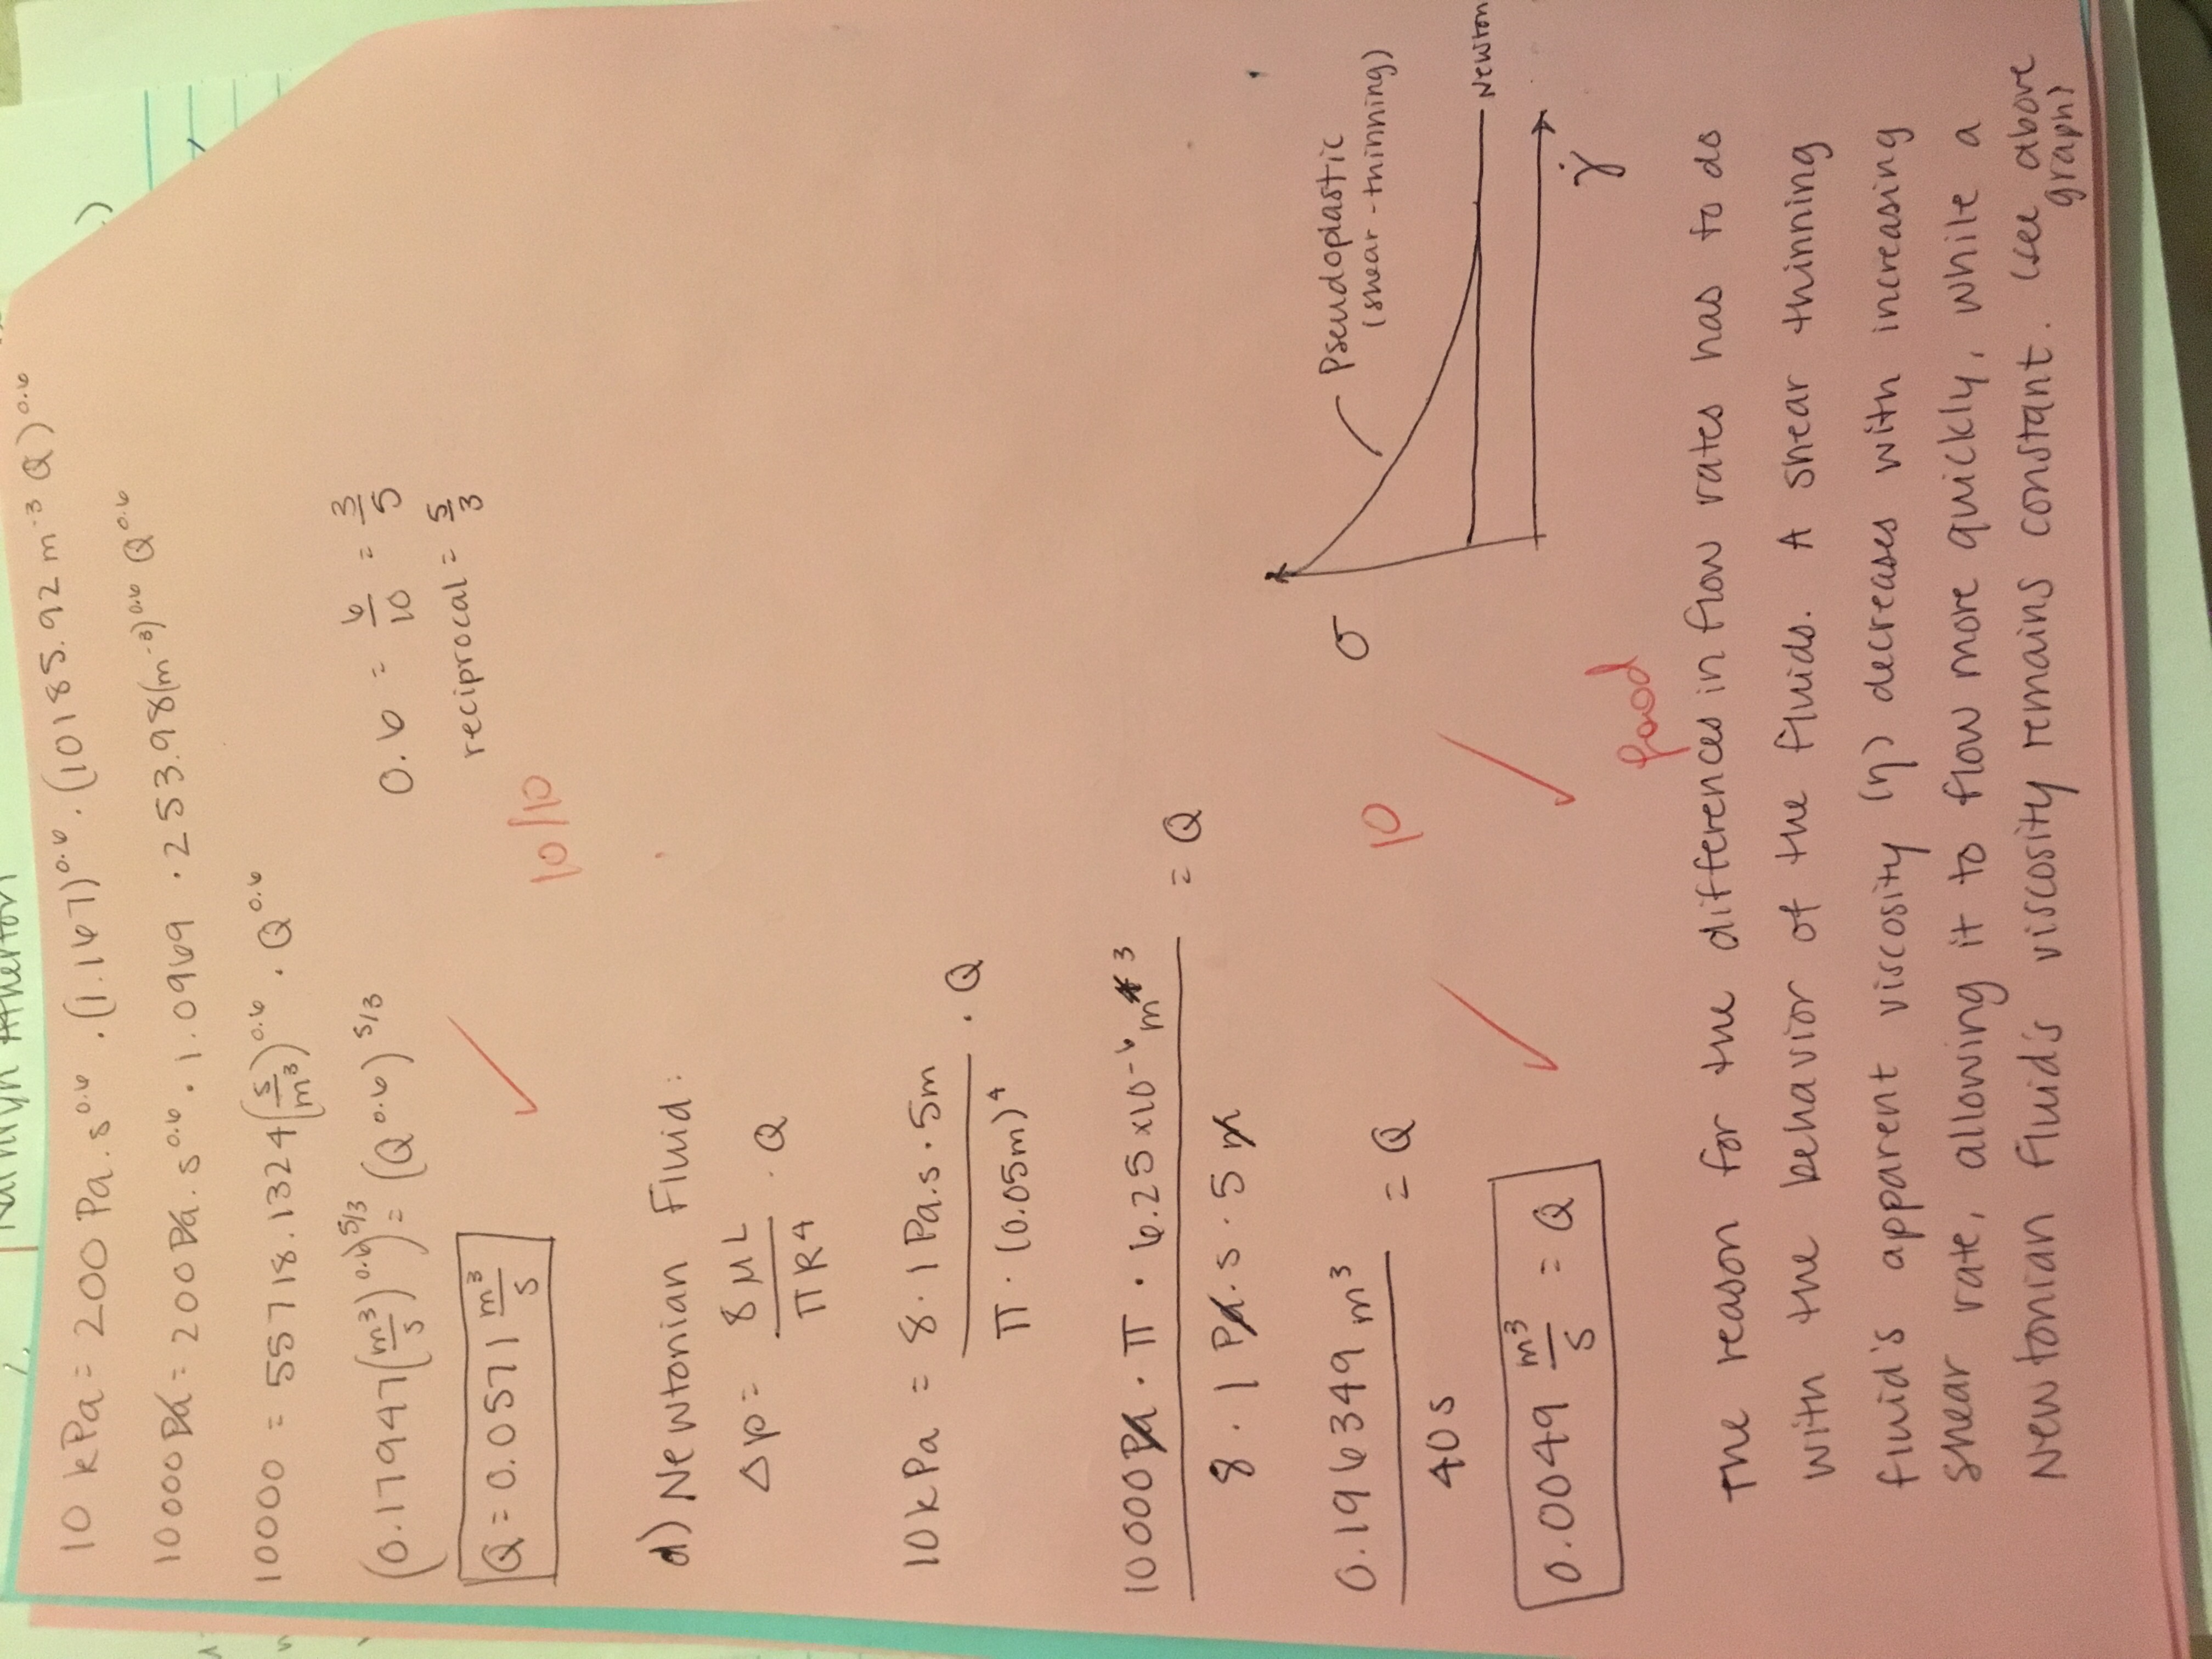 Kathryn Atherton
10 kPa = 200 Pa.s^0.6 . (1.167)^0.6 . (10185.92 m^-3 Q)^0.6
10000 Pa = 200 Pa. s^0.6 . 1.0969 . 253.98(m^-3)^0.6 Q^0.6
10000 = 55718.1324 (s/m^3)^0.6 . Q^0.6
(0.17947 (m^3/s)^0.6)^5/3 = (Q^0.6)^5/3
0.6 = 6/10 = 3/5
reciprocal = 5/3
Q = 0.0571 m^3/s
10/10
d) Newtonian Fluid:
Δp = 8μL/πR^4 . Q
10 kPa = 8. 1 Pa.s . 5m / π . (0.05m)^4 . Q
10000 Pa . π . 6.25 x10^-6 m^4 3 / 8 . 1 Pa. s . 5 m = Q
0.196349 m^3 / 40 s = Q
10
σ
Pseudoplastic
(shear-thinning)
Newton
γ̇
0.0049 m^3/s = Q
good
The reason for the differences in flow rates has to do
with the behavior of the fluids. A shear thinning
fluid's apparent viscosity (η) decreases with increasing
shear rate, allowing it to flow more quickly, while a
Newtonian fluid's viscosity remains constant. (see above
graph)